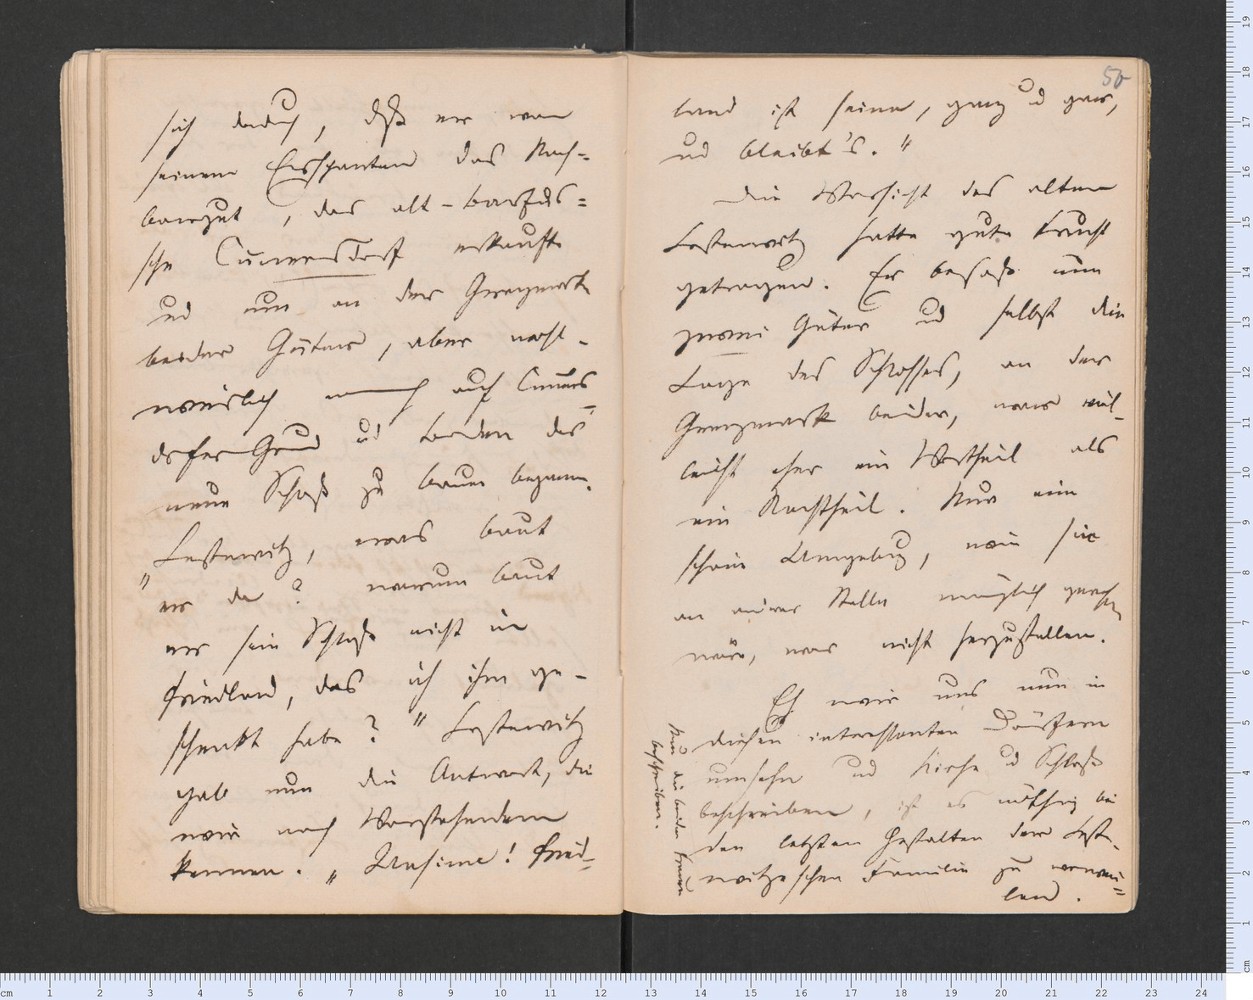 sich dadurch, daß er von
seinem Ersparten das Nach-
bargut, das alt-barfus-
sche Cunersdorf erkaufte
und nun an der Grenzmark
beider Güter, aber
auf Cuners-
dorfer Grund und Boden das
neue Schloß zu bauen begann.
„Lestwitz, was baut
er da? warum baut
er sein Schloß nicht in
Friedland, das ich ihm ge-
schenkt habe?" Lestwitz
gab nun die Antwort, die
wir nach Vorstehendem
kennen. „Unsinn! Fried-
50
land ist seine, ganz und gar,
und bleibt's."
Die Vorsicht des alten
Lestwitz hatte gute Frucht
getragen. Er besaß nun
zwei Güter und selbst die
Lage des Schlosses, an der
Grenzmark beider, war viel-
leicht eher ein Vortheil als
ein Nachtheil. Nur eine
schöne Umgebung, wie sie
an andrer Stelle möglich gewesen
wäre, war nicht herzustellen.
Eh wir uns nun in
diesen interessanten Dörfern
umsehn und Kirche und Schloß
beschreiben, ist es nöthig bei
den letzten Gestalten der Lest-
witzschen Familie zu verwei-
len.
Nur die beiden Frauen
beschreiben.